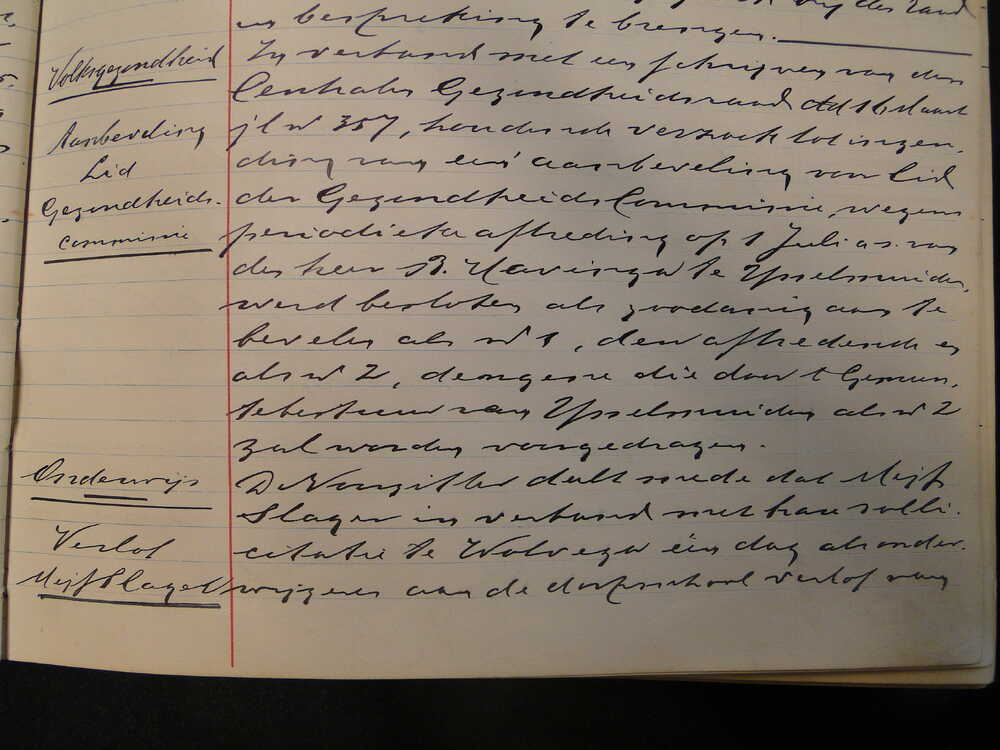 en bespreking te brengen.
Volksgezondheid
In verband met een schrijven van den
Centralen Gezondheidsraad dd 16 Maart
Aanbeveling
jl no 357, houdende verzoek tot inzen-
Lid
ding van een aanbeveling van lid
Gezondheids-
der Gezondheids Commissie, wegens
commissie
periodieke aftreding op 1 Juli a.s. van
den heer B. Havinga te IJsselmuiden,
werd besloten als zoodanig aan te
bevelen als no 1, den aftredende en
als no 2, deongene die door 't Gemeen-
tebestuur van IJsselmuiden als no 2
zal worden voorgedragen.
Onderwijs
De Voorzitter deelt mede dat Mejf
Slager in verband met haar solli-
Verlof
citatie te Wolvega één dag als onder-
Mejf Slager
wijzeres aan de dorpsschool verlof van